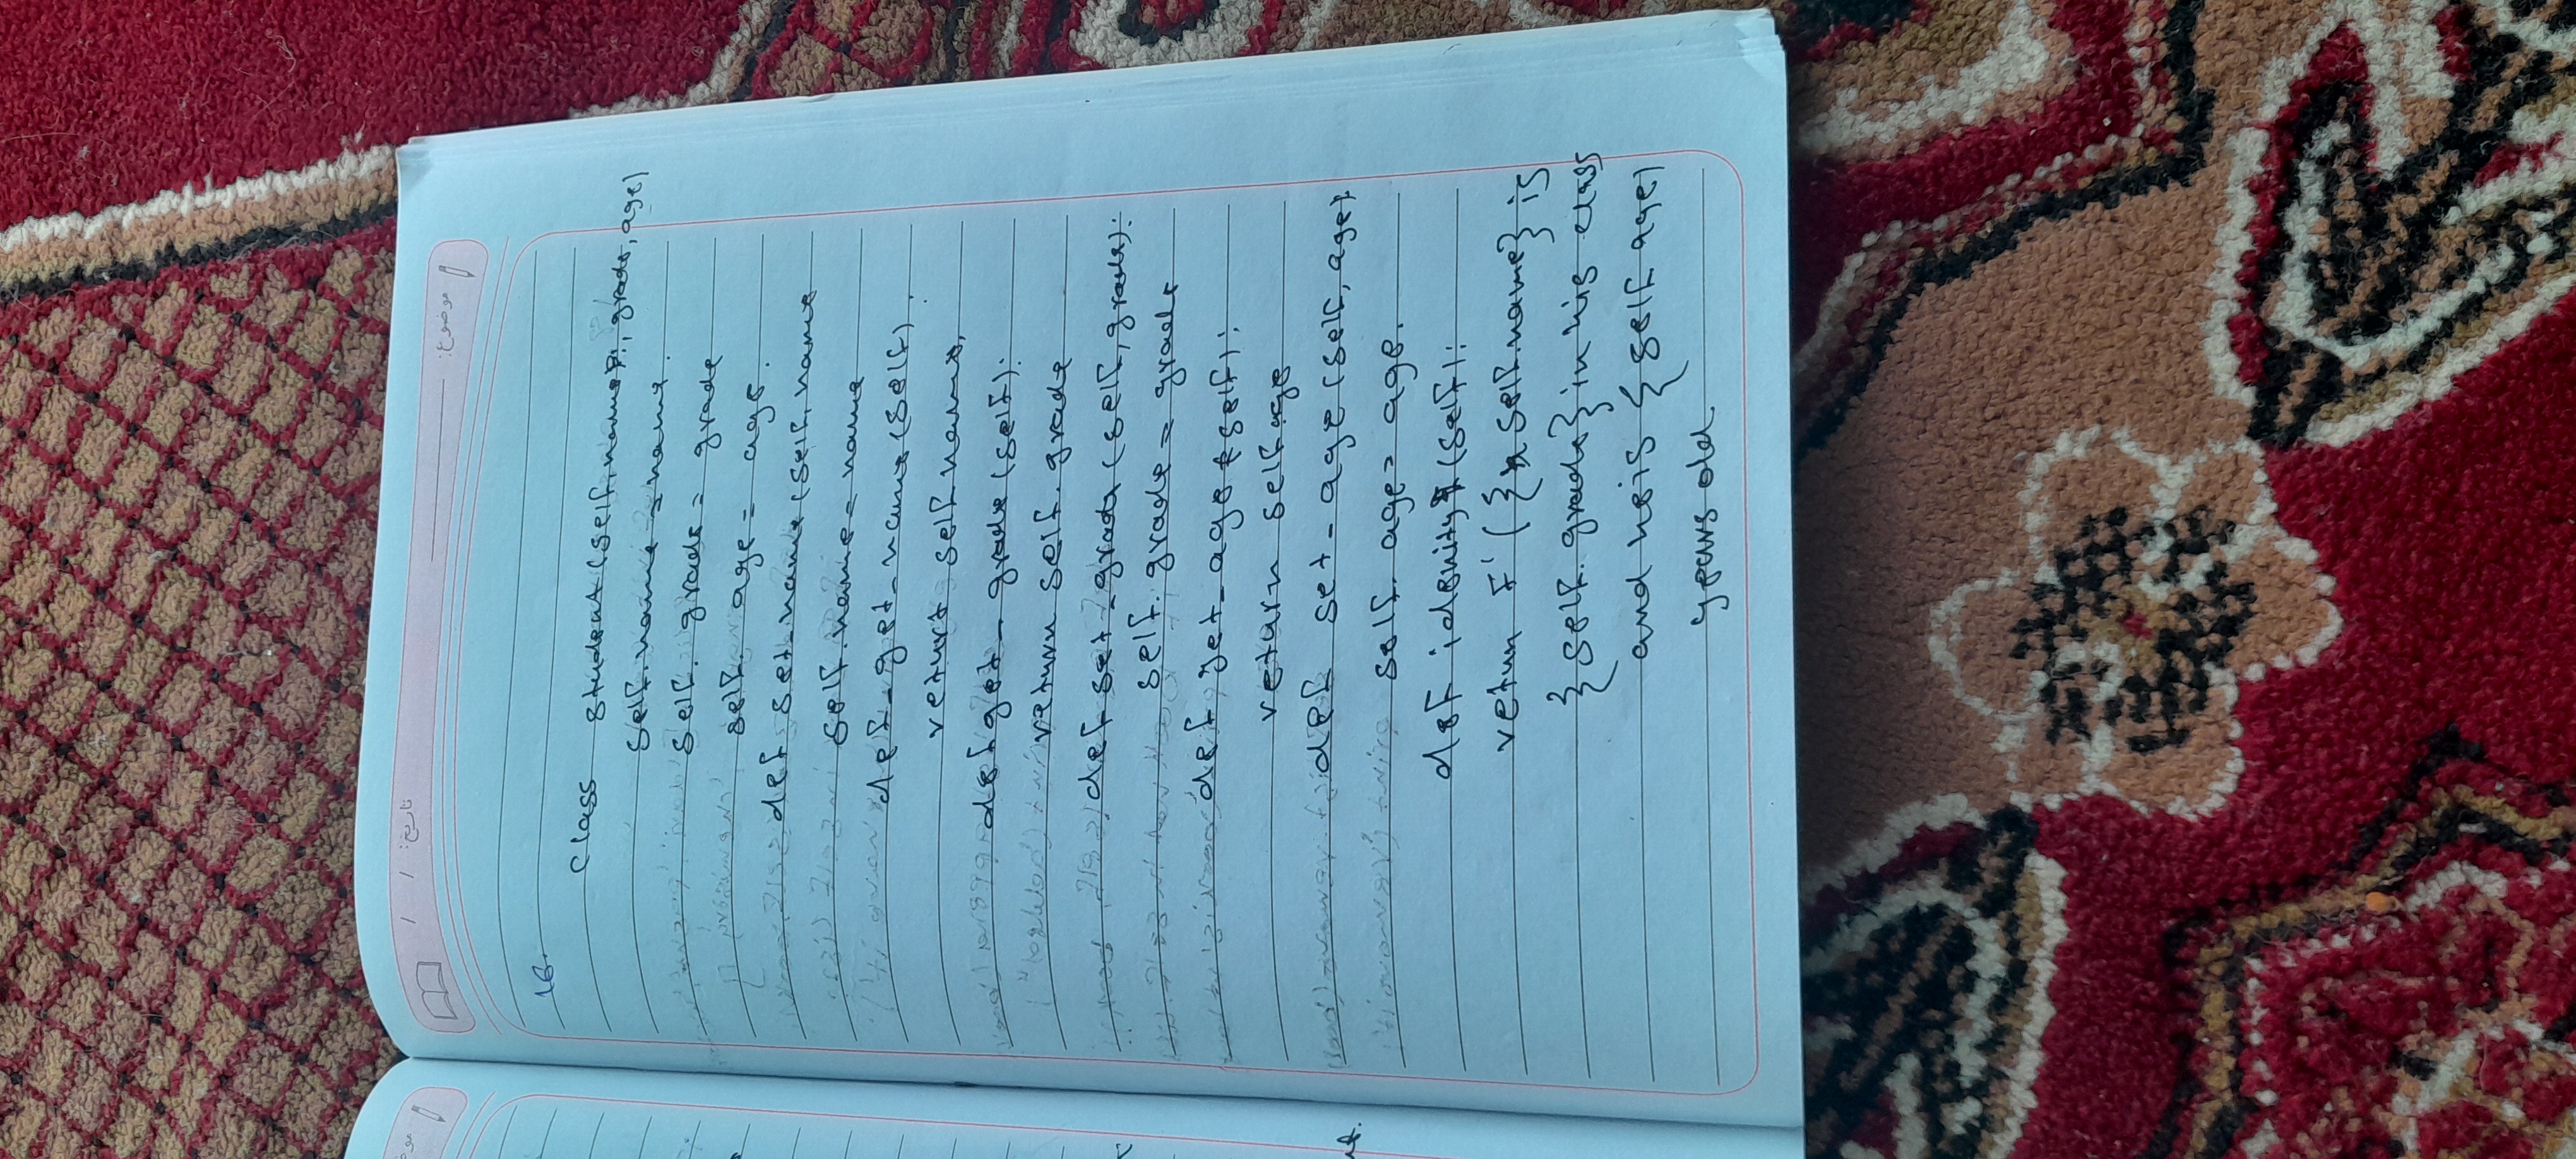 موضوع:
تاریخ: / /
16.
class student (self, name):, grade, age)
self.name = name.
self. grade = grade
self. age = age.
def set_name (self, name
self.name = name
def_get_name (self).
return self name,
def get_ grade (self):
return self. grade
def set_grade (self, grade):
self. grade = grade
def get_age (self):
return self age
def set_age (self, age):
self. age = age.
def idenity (self):
retun F' ({ self.name} is
{self. grade} in his class
and he is {self age)
years old